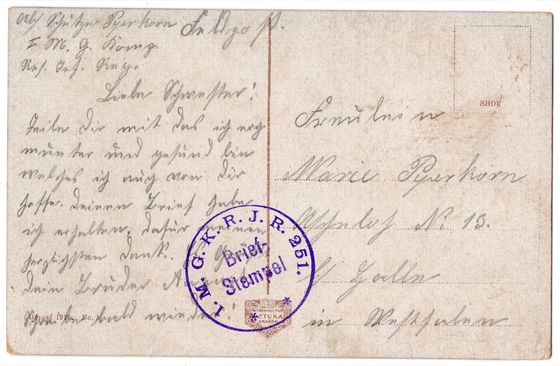 Abs. Schütze Pyerkorn
I M. G. Komp.
Res. Inf. Reg.
Feldpost
Liebe Schwester!
Teile Dir mit das ich noch
munter und gesund bin
welches ich auch von Dir
hoffe. Deinen Brief habe
ich erhalten, dafür meinen
herzlichsten Dank. Es grüßt
Dein Bruder
Schreibe bald wieder!
Fräulein
Marie Pyerkorn
No 13.
Halle
in Westfalen
1. M. G. K. R. J. R. 251.
Brief-
Stempel
SZTUKA